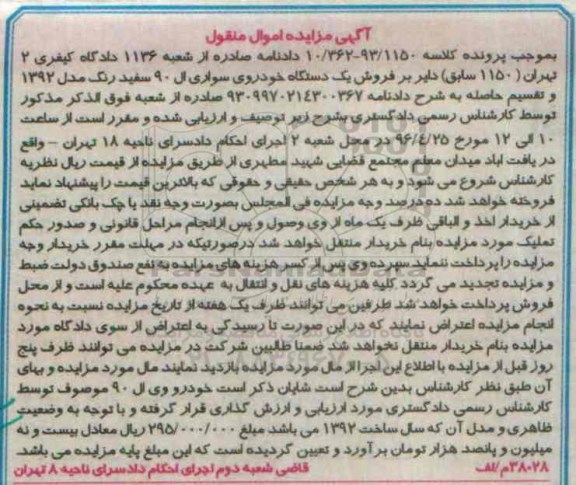 آگهی مزایده اموال منقول
بموجب پرونده کلاسه ۹۳/۱۱۵۰-۱۰/۳۶۲ دادنامه صادره از شعبه ۱۱۳۶ دادگاه کیفری ۲
تهران ( ۱۱۵۰ سابق) دایر بر فروش یک دستگاه خودروی سواری ال ۹۰ سفید رنگ مدل ۱۳۹۲
و تقسیم حاصله به شرح دادنامه ۹۳۰۹۹۷۰۲۱۴۳۰۰۳۶۷ صادره از شعبه فوق الذکر مذکور
توسط کارشناس رسمی دادگستری بشرح زیر توصیف و ارزیابی شده و مقرر است از ساعت
۱۰ الی ۱۲ مورخ ۹۶/۴/۲۵ در محل شعبه ۲ اجرای احکام دادسرای ناحیه ۱۸ تهران - واقع
در یافت اباد میدان معلم مجتمع قضایی شهید مطهری از طریق مزایده از قیمت ریال نظریه
کارشناس شروع می شود و به هر شخص حقیقی و حقوقی که بالاترین قیمت را پیشنهاد نماید
فروخته خواهد شد ده درصد وجه مزایده فی المجلس بصورت وجه نقد یا چک بانکی تضمینی
از خریدار اخذ و الباقی ظرف یک ماه از وی وصول و پس از انجام مراحل قانونی و صدور حکم
تملیک مورد مزایده بنام خریدار منتقل خواهد شد درصورتیکه در مهلت مقرر خریدار وجه
مزایده را پرداخت ننماید سپرده وی پس از کسر هزینه های مزایده به نفع صندوق دولت ضبط
و مزایده تجدید می گردد کلیه هزینه های نقل و انتقال به عهده محکوم علیه است و از محل
فروش پرداخت خواهد شد طرفین می توانند ظرف یک هفته از تاریخ مزایده نسبت به نحوه
انجام مزایده اعتراض نمایند که در این صورت تا رسیدگی به اعتراض از سوی دادگاه مورد
مزایده بنام خریدار منتقل نخواهد شد ضمنا طالبین شرکت در مزایده می توانند ظرف پنج
روز قبل از مزایده با اطلاع این اجرا از مال مورد مزایده بازدید نمایند مال مورد مزایده و بهای
آن طبق نظر کارشناس بدین شرح است شایان ذکر است خودرو وی ال ۹۰ موصوف توسط
کارشناس رسمی دادگستری مورد ارزیابی و ارزش گذاری قرار گرفته و با توجه به وضعیت
ظاهری و مدل آن که سال ساخت ۱۳۹۲ می باشد مبلغ ۲۹۵/۰۰۰/۰۰۰ ریال معادل بیست و نه
میلیون و پانصد هزار تومان برآورد و تعیین گردیده است که این مبلغ پایه مزایده می باشد.
۳۸۰۲۸/م الف قاضی شعبه دوم اجرای احکام دادسرای ناحیه ۸ تهران